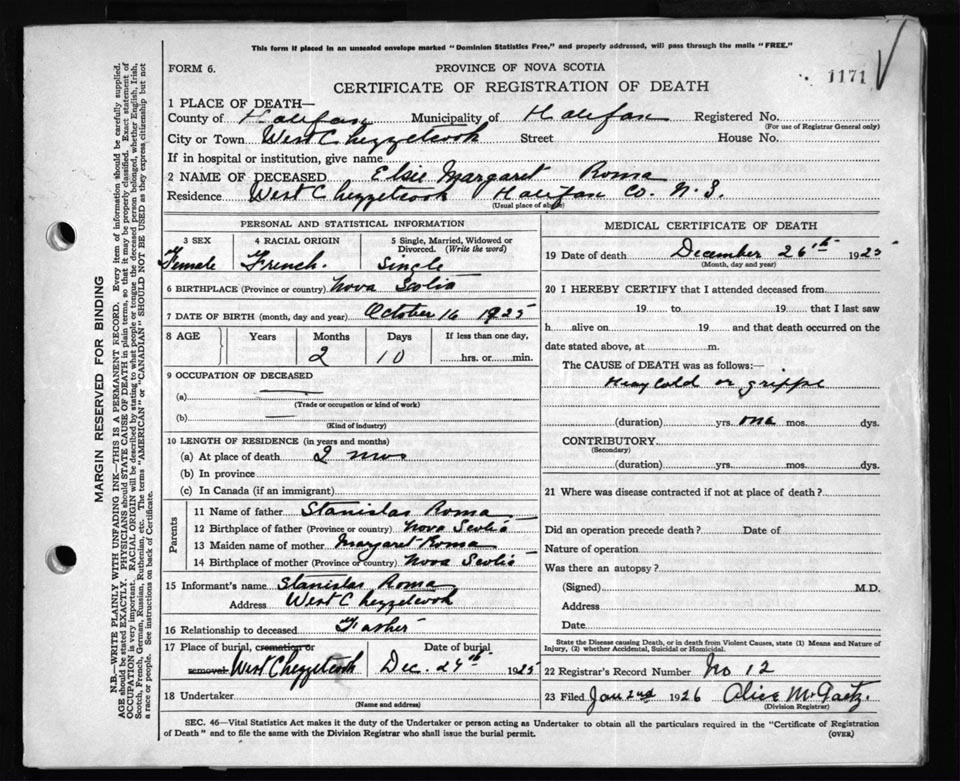 This form if placed in an unsealed envelope marked "Dominion Statistics Free," and properly addressed, will pass through the mails "FREE."
FORM 6.
PROVINCE OF NOVA SCOTIA
1171
CERTIFICATE OF REGISTRATION OF DEATH
1 PLACE OF DEATH—
County of Halifax Municipality of Halifax Registered No.
(For use of Registrar General only)
City or Town West Chezzetcook Street House No.
If in hospital or institution, give name
2 NAME OF DECEASED Elsie Margaret Roma
Residence West Chezzetcook Halifax Co. N.S.
(Usual place of abode)
PERSONAL AND STATISTICAL INFORMATION
3 SEX 4 RACIAL ORIGIN 5 Single, Married, Widowed or Divorced. (Write the word)
Female French. Single
6 BIRTHPLACE (Province or country) Nova Scotia
7 DATE OF BIRTH (month, day and year) October 16 1925
8 AGE Years Months Days If less than one day,
2 10 hrs. or min.
9 OCCUPATION OF DECEASED
(a)
(Trade or occupation or kind of work)
(b)
(Kind of industry)
10 LENGTH OF RESIDENCE (in years and months)
(a) At place of death 2 mos
(b) In province
(c) In Canada (if an immigrant)
Parents
11 Name of father Stanislas Roma
12 Birthplace of father (Province or country) Nova Scotia
13 Maiden name of mother Margaret Roma
14 Birthplace of mother (Province or country) Nova Scotia
15 Informant's name Stanislas Roma
Address West Chezzetcook
16 Relationship to deceased Father
17 Place of burial, cremation or Date of burial
removal West Chezzetcook Dec. 27th 1925
18 Undertaker
(Name and address)
MEDICAL CERTIFICATE OF DEATH
19 Date of death December 26th 1925
(Month, day and year)
20 I HEREBY CERTIFY that I attended deceased from
19 to 19 that I last saw
h alive on 19 and that death occurred on the
date stated above, at m.
The CAUSE of DEATH was as follows:—
Heavy Cold or grippe
(duration) yrs. one mos. dys.
CONTRIBUTORY
(Secondary)
(duration) yrs. mos. dys.
21 Where was disease contracted if not at place of death?
Did an operation precede death? Date of
Nature of operation
Was there an autopsy?
(Signed) M.D.
Address
Date
State the Disease causing Death, or in death from Violent Causes, state (1) Means and Nature of
Injury, (2) whether Accidental, Suicidal or Homicidal.
22 Registrar's Record Number No 12
23 Filed Jan 2nd 1926 Alice M. Gaetz.
(Division Registrar)
SEC. 46—Vital Statistics Act makes it the duty of the Undertaker or person acting as Undertaker to obtain all the particulars required in the "Certificate of Registration
of Death" and to file the same with the Division Registrar who shall issue the burial permit.
(OVER)
MARGIN RESERVED FOR BINDING
N.B.—WRITE PLAINLY WITH UNFADING INK—THIS IS A PERMANENT RECORD. Every item of information should be carefully supplied.
AGE should be stated EXACTLY. PHYSICIANS should STATE CAUSE OF DEATH in plain terms, so that it may be properly classified. Exact statement of
OCCUPATION is very important. RACIAL ORIGIN will be described by stating to what people or tongue the deceased person belonged, whether English, Irish,
Scotch, French, German, Russian, Ruthenian, etc. The terms "AMERICAN" or "CANADIAN" SHOULD NOT BE USED as they express citizenship but not
a race or people. See instructions on back of Certificate.